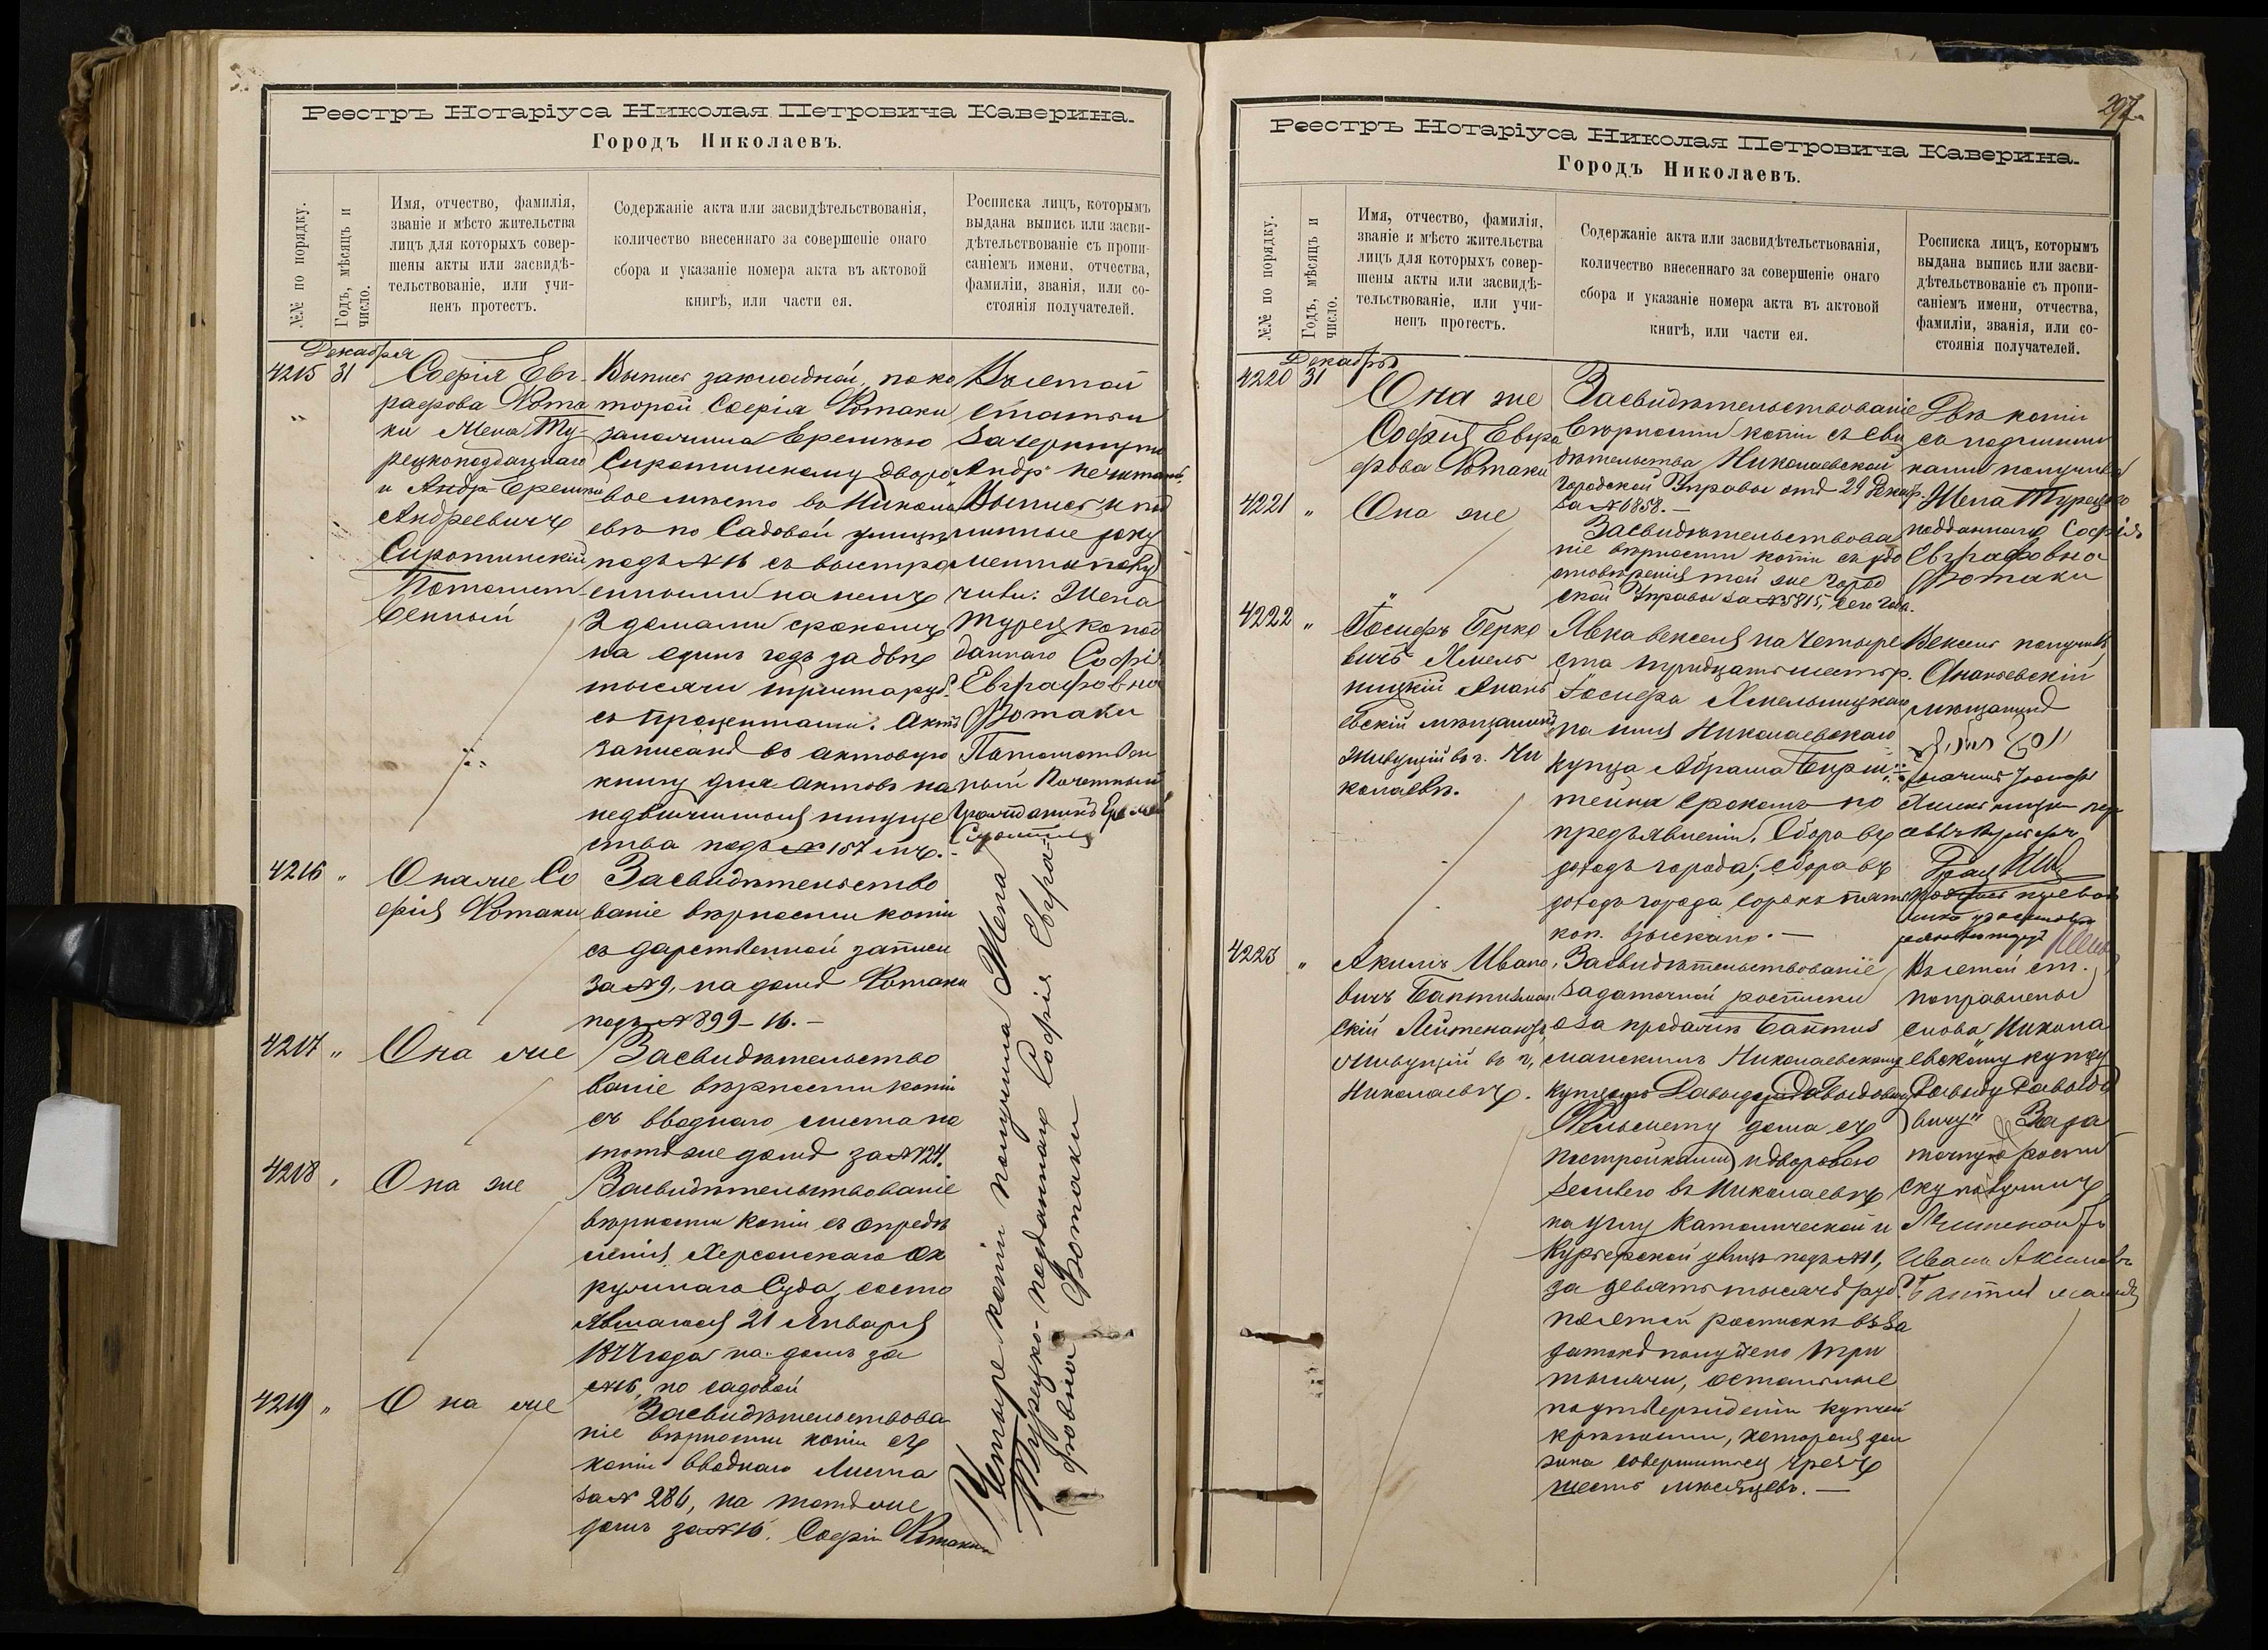 Реестръ Нотаріуса Николая Петровича Каверина.
Городъ Николаевъ.
№№ по порядку.
Годъ, мѣсяцъ и
число.
Имя, отчество, фамилія,
званіе и мѣсто жительства
лицъ для которыхъ совер-
шены акты или засвидѣ-
тельствованіе, или учи-
ненъ протестъ.
Содержаніе акта или засвидѣтельствованія,
количество внесеннаго за совершеніе онаго
сбора и указаніе номера акта въ актовой
книгѣ, или части ея.
Росписка лицъ, которымъ
выдана выпись или засви-
дѣтельствованіе съ пропи-
саніемъ имени, отчества,
фамиліи, званія, или со-
стоянія получателей.
Декабря
4215 31
Софія Евг-
рафова Фота
ки жена Ту-
рецкоподданнаго
и Андр Еремѣй
Андреевичъ
Сиротинскій
Потомст
венный
Выпись закладной, по ко
торой Софія Фотаки
заложила Еремѣю
Сиротинскому дворо
вое мѣсто въ Никола
евѣ по Садовой улицѣ
подъ №16 съ выстро
енными на немъ
2 домами срокомъ
на одинъ годъ за двѣ
тысячи триста руб.
съ процентами. Актъ
записанъ въ актовую
книгу для актовъ на
недвижимыя имуще
ства подъ №157 мъ.-
Въ этой
статьи
зачеркнуто
„Андр" не читать.
Выпись и под
линные доку
менты полу
чили: Жена
Турецкопод
даннаго Софія
Евграфовна
Фотаки
Потомствен
ный Почетный
Гражданинъ Еремѣй
Сиротинскій
4216 „
Она же Со
фія Фотаки
Засвидѣтельство
ваніе вѣрности копіи
съ дарственной записи
за №9, на домъ Фотаки
подъ №899-16.-
4217 „
Она же
Засвидѣтельство
ваніе вѣрности копіи
съ вводнаго листа на
тотъ же домъ за №24.
4218 „
Она же
Засвидѣтельствованіе
вѣрности копіи съ опредѣ
ленія Херсонскаго Ок
ружнаго Суда, состо
явшагося 21 Января
1877 года на домъ за
№16, по садовой
4219 „
Она же
Засвидѣтельствова
ніе вѣрности копіи съ
копіи вводнаго листа
за № 286, на тотъ же
домъ за №16. Софіи Фотаки
Четыре копіи получила Жена
Турецко-подданнаго Софія Евгра-
фовна Фотаки
297.
Реестръ Нотаріуса Николая Петровича Каверина.
Городъ Николаевъ.
№№ по порядку.
Годъ, мѣсяцъ и
число.
Имя, отчество, фамилія,
званіе и мѣсто жительства
лицъ для которыхъ совер-
шены акты или засвидѣ-
тельствованіе, или учи-
ненъ протестъ.
Содержаніе акта или засвидѣтельствованія,
количество внесеннаго за совершеніе онаго
сбора и указаніе номера акта въ актовой
книгѣ, или части ея.
Росписка лицъ, которымъ
выдана выпись или засви-
дѣтельствованіе съ пропи-
саніемъ имени, отчества,
фамиліи, званія, или со-
стоянія получателей.
Декабрь
4220 31
Она же
Софія Евгра
фова Фотаки
Засвидѣтельствованіе
вѣрности копіи съ сви
дѣтельства Николаевской
Городской Управы отъ 29 Декаб.
за №6858.-
Двѣ копіи
съ подлинни
ками получила
Жена Турецко
подданнаго Софія
Евграфовна
Фотаки
4221 „
Она же
Засвидѣтельствова
ніе вѣрности копіи съ удо
стовѣренія той же Город
ской Управы за №5815, сего года.
4222 „
Іосифъ Берко
вичъ Хмель
ницкій Анань
евскій мѣщанинъ
живущій въ г. Ни
колаевѣ.
Явка векселя на четыре
ста тридцать шесть р.
Іосифа Хмельницкаго
на имя Николаевскаго
купца Абрама Бирш-
тейна срокомъ по
предъявленіи. Сбора въ
доходъ города; сбора въ
доходъ города сорокъ пять
коп. взыскано.-
Вексель получилъ
Ананьевскій
мѣщанинъ
4223 „
Акимъ Ивано
вичъ Бантышман
скій Лейтенантъ,
живущій въ г.
Николаевѣ.
Засвидѣтельствованіе
задаточной росписки
о за продажѣ Бантыш
манскимъ Николаевскому
купцу Давыду Давыдовичу
дома съ
постройками и дворовою
землею въ Николаевѣ
на углу Католической и
Курьерской улицъ подъ №1,
за девять тысячъ руб.
по этой роспискѣ въ за
датокъ получено три
тысячи, остальные
по утвержденіи купчей
крѣпости, которая дол
жна совершиться чрезъ
шесть мѣсяцевъ.-
Въ этой ст.
поправлены
слова „Никола
евскому купцу
Давыду Давыдо
вичу" Зада
точную роспи
ску получилъ
Лейтенантъ